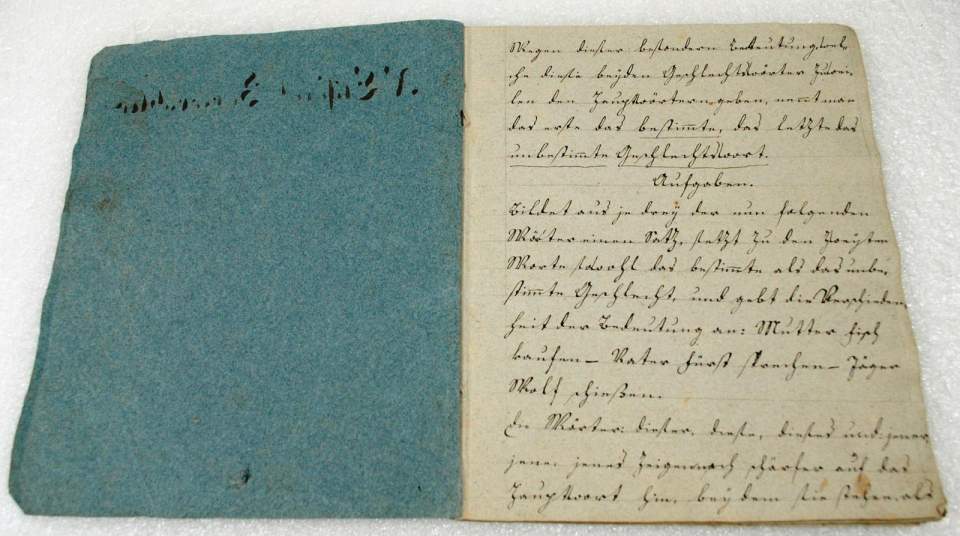 Wegen dieser besondern Bedeutung, wel¬
che diese beyden Geschlechtswörter zuwei¬
len den Hauptwörtern geben, nennt man
das erste das bestimmte, das letzte das
unbestimmte Geschlechtswort.
Aufgaben.
Bildet aus je drey der nun folgenden
Wörter einen Satz, setzt zu dem zweyten
Worte sowohl das bestimmte als das unbe¬
stimmte Geschlecht, und gebt die Verschieden
heit der Bedeutung an: Mutter Fisch
kaufen – Vater Fürst sprechen – Jäger
Wolf schießen.
Die Wörter: dieser, diese, dieses und: jener
jene, jenes zeigen noch schärfer auf das
Hauptwort hin, bey dem sie stehen, als